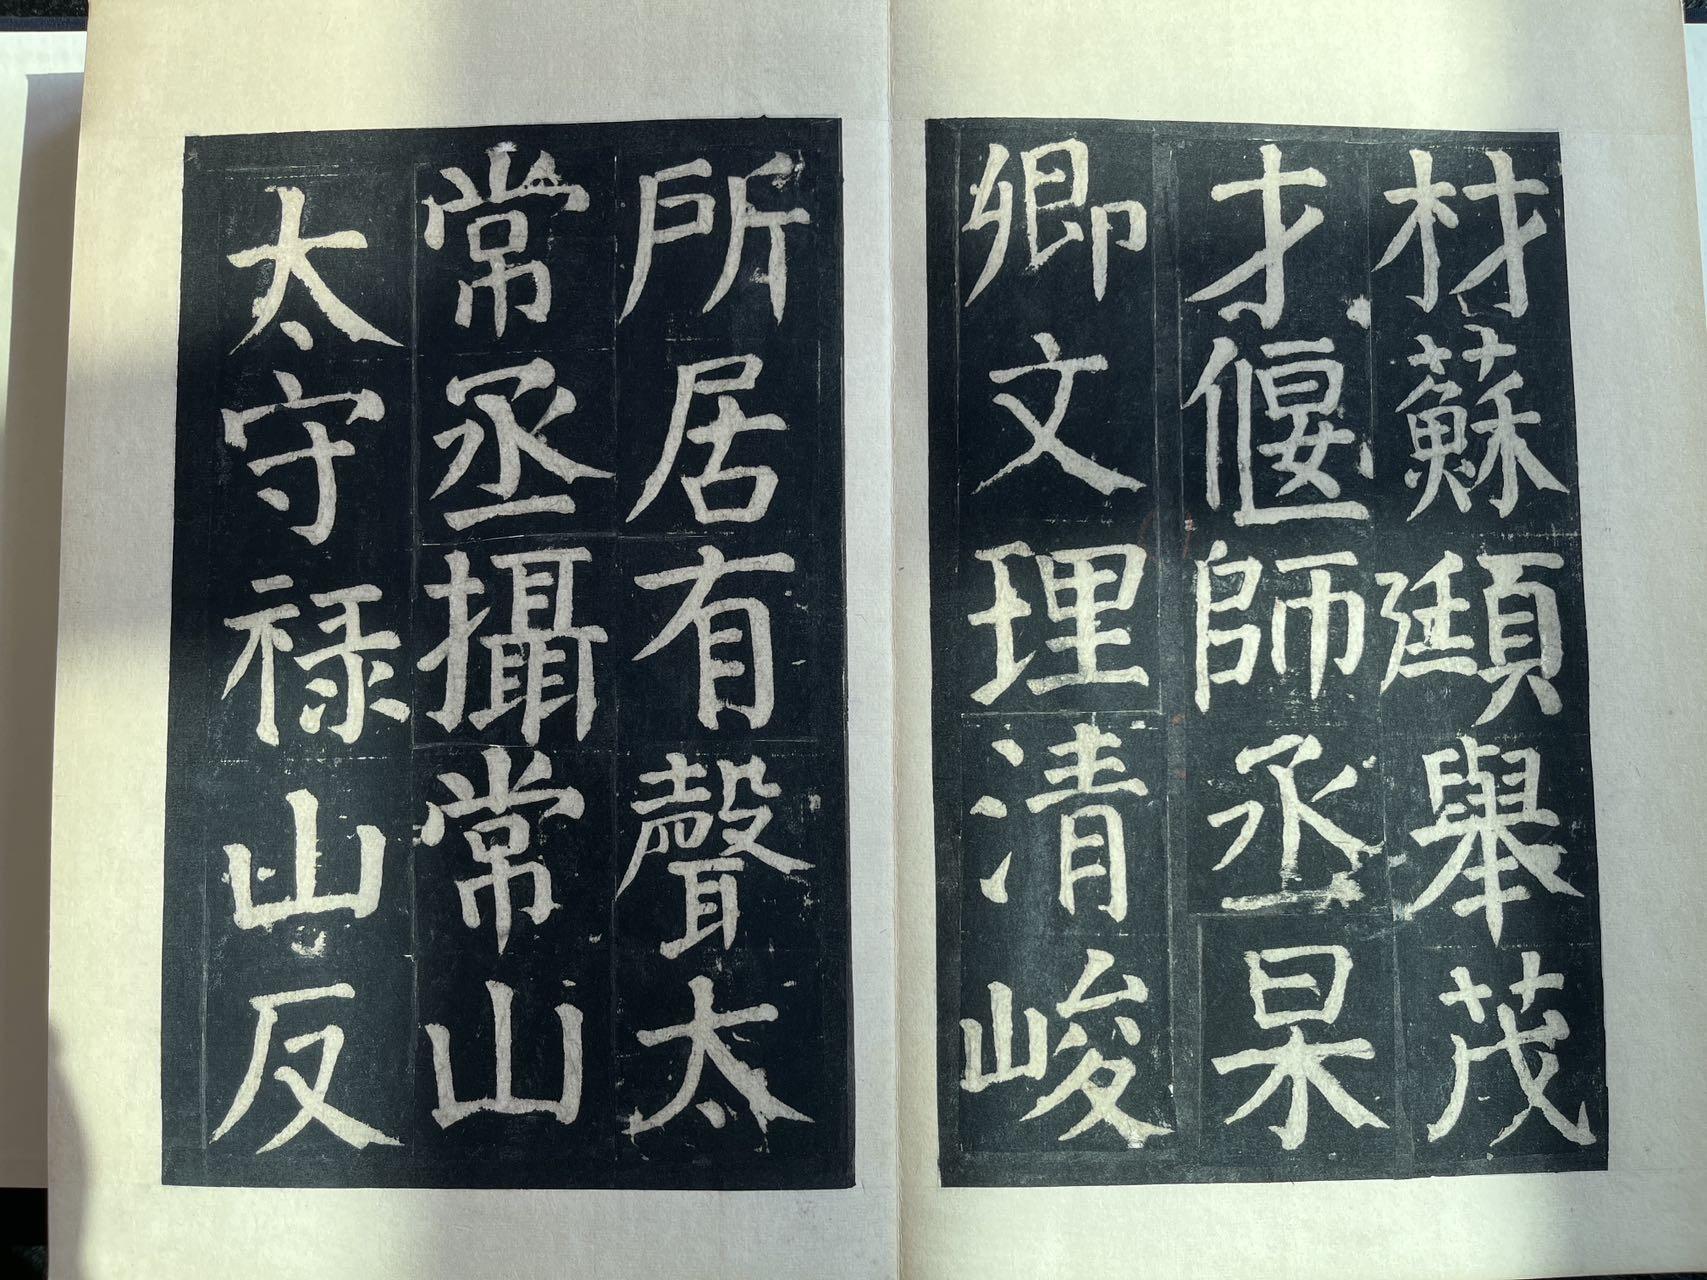 材蘇頲舉茂
才偃師丞杲
卿文理清峻
所居有聲太
常丞攝常山
太守禄山反